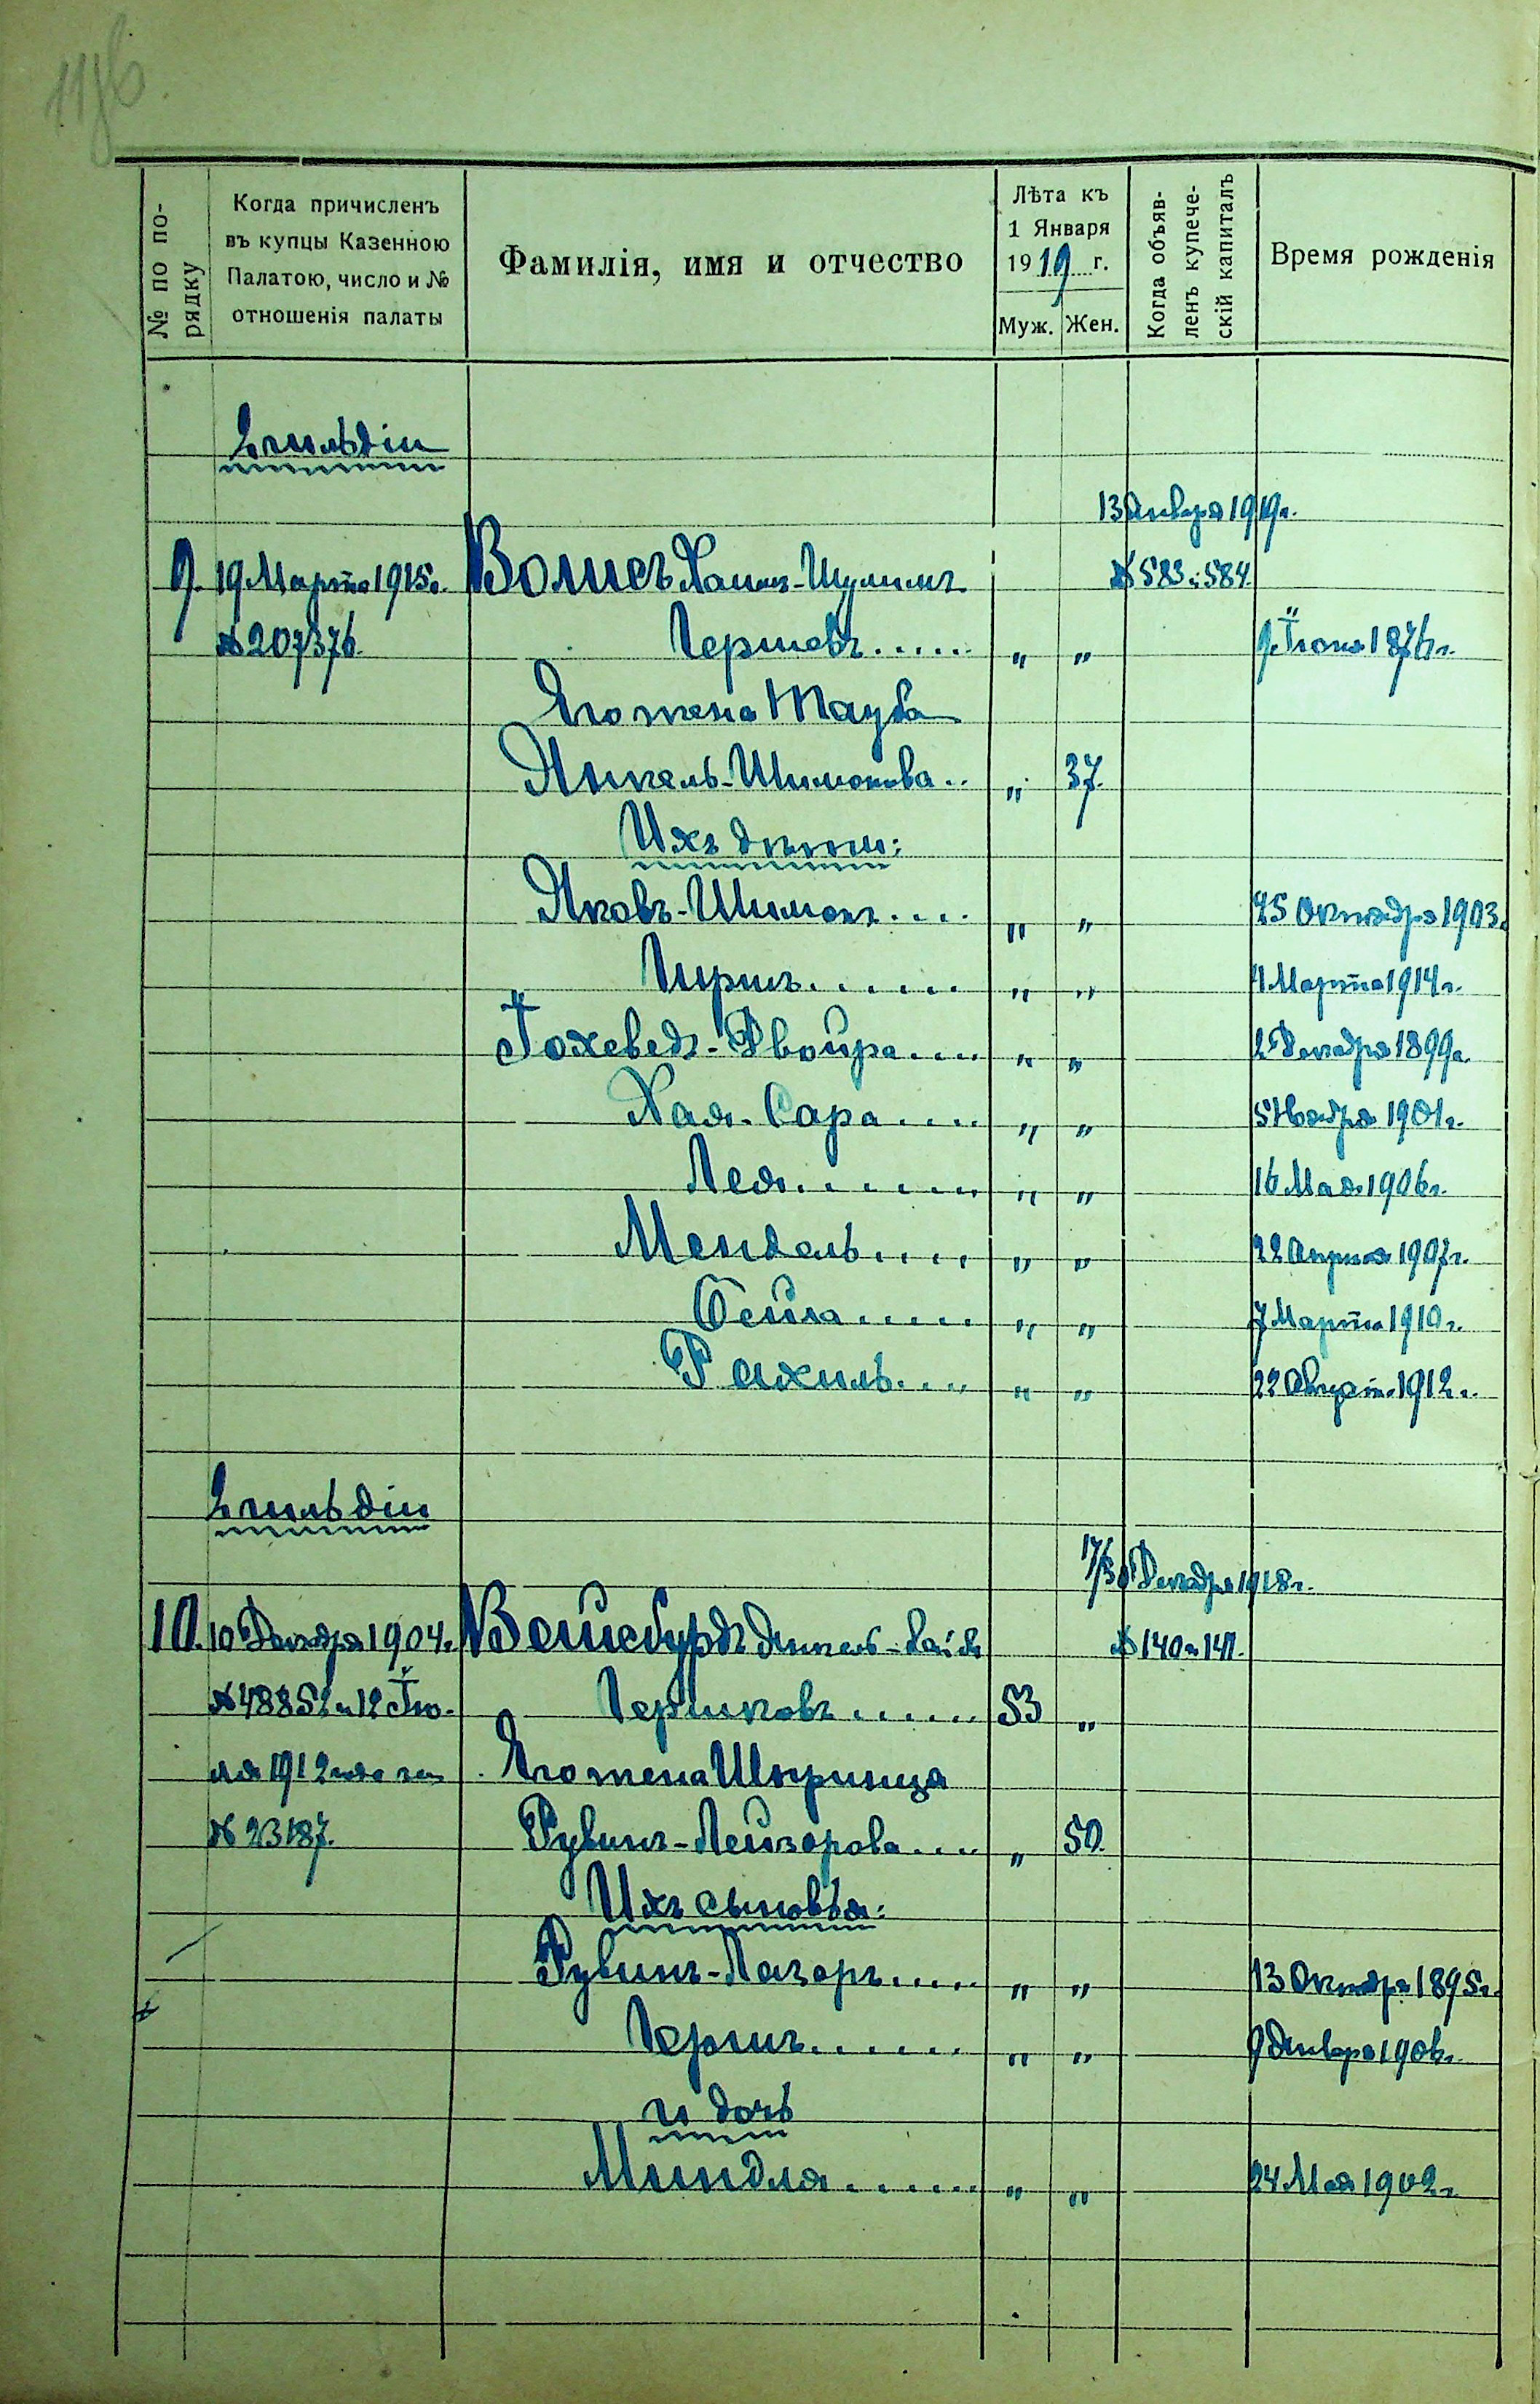 11об
№ по порядку
Когда причисленъ
въ купцы Казенною
Палатою, число и №
отношенія палаты
Фамилія, имя и отчество
Лѣта къ
1 Января
1919 г.
Муж. Жен.
Когда объяв-
ленъ купече-
скій капиталъ
Время рожденія
2 гильдіи
13 Января 1919 г.
9. 19 Марта 1915 г. Волисъ Хаимъ-Шулимъ № 583 и 584.
№ 207376. Гершовъ..... " " 9 Іюня 1876 г.
Его жена Тауба
Янкель-Шимонова.. " 37.
Ихъ дѣти:
Яковъ-Шимонъ.... " " 25 Октября 1903 г.
Гиршъ...... " " 4 Марта 1914 г.
Іохеведъ-Двойра.... " " 2 Декабря 1899 г.
Хая-Сара.... " " 5 Ноября 1901 г.
Лея....... " " 16 Мая 1906 г.
Мендель..... " " 22 Апреля 1907 г.
Бейла..... " " 7 Марта 1910 г.
Рахиль.... " " 22 Августа 1912 г.
2 гильдіи
17/30 Декабря 1918 г.
10. 10 Декабря 1904 г. Вейсбурдъ Янкель- № 140 и 141.
№ 48852 и 12 Ію- Гершковъ...... 53 "
ля 1912 года за Его жена Шпринца
№ 23187. Рувинъ-Лейзорова.... " 50.
Ихъ сыновья:
Рувинъ-Лазарь..... " " 13 Октября 1895 г.
Гершъ...... " " 9 Января 1906 г.
и дочь
Миндля...... " " 24 Мая 1902 г.